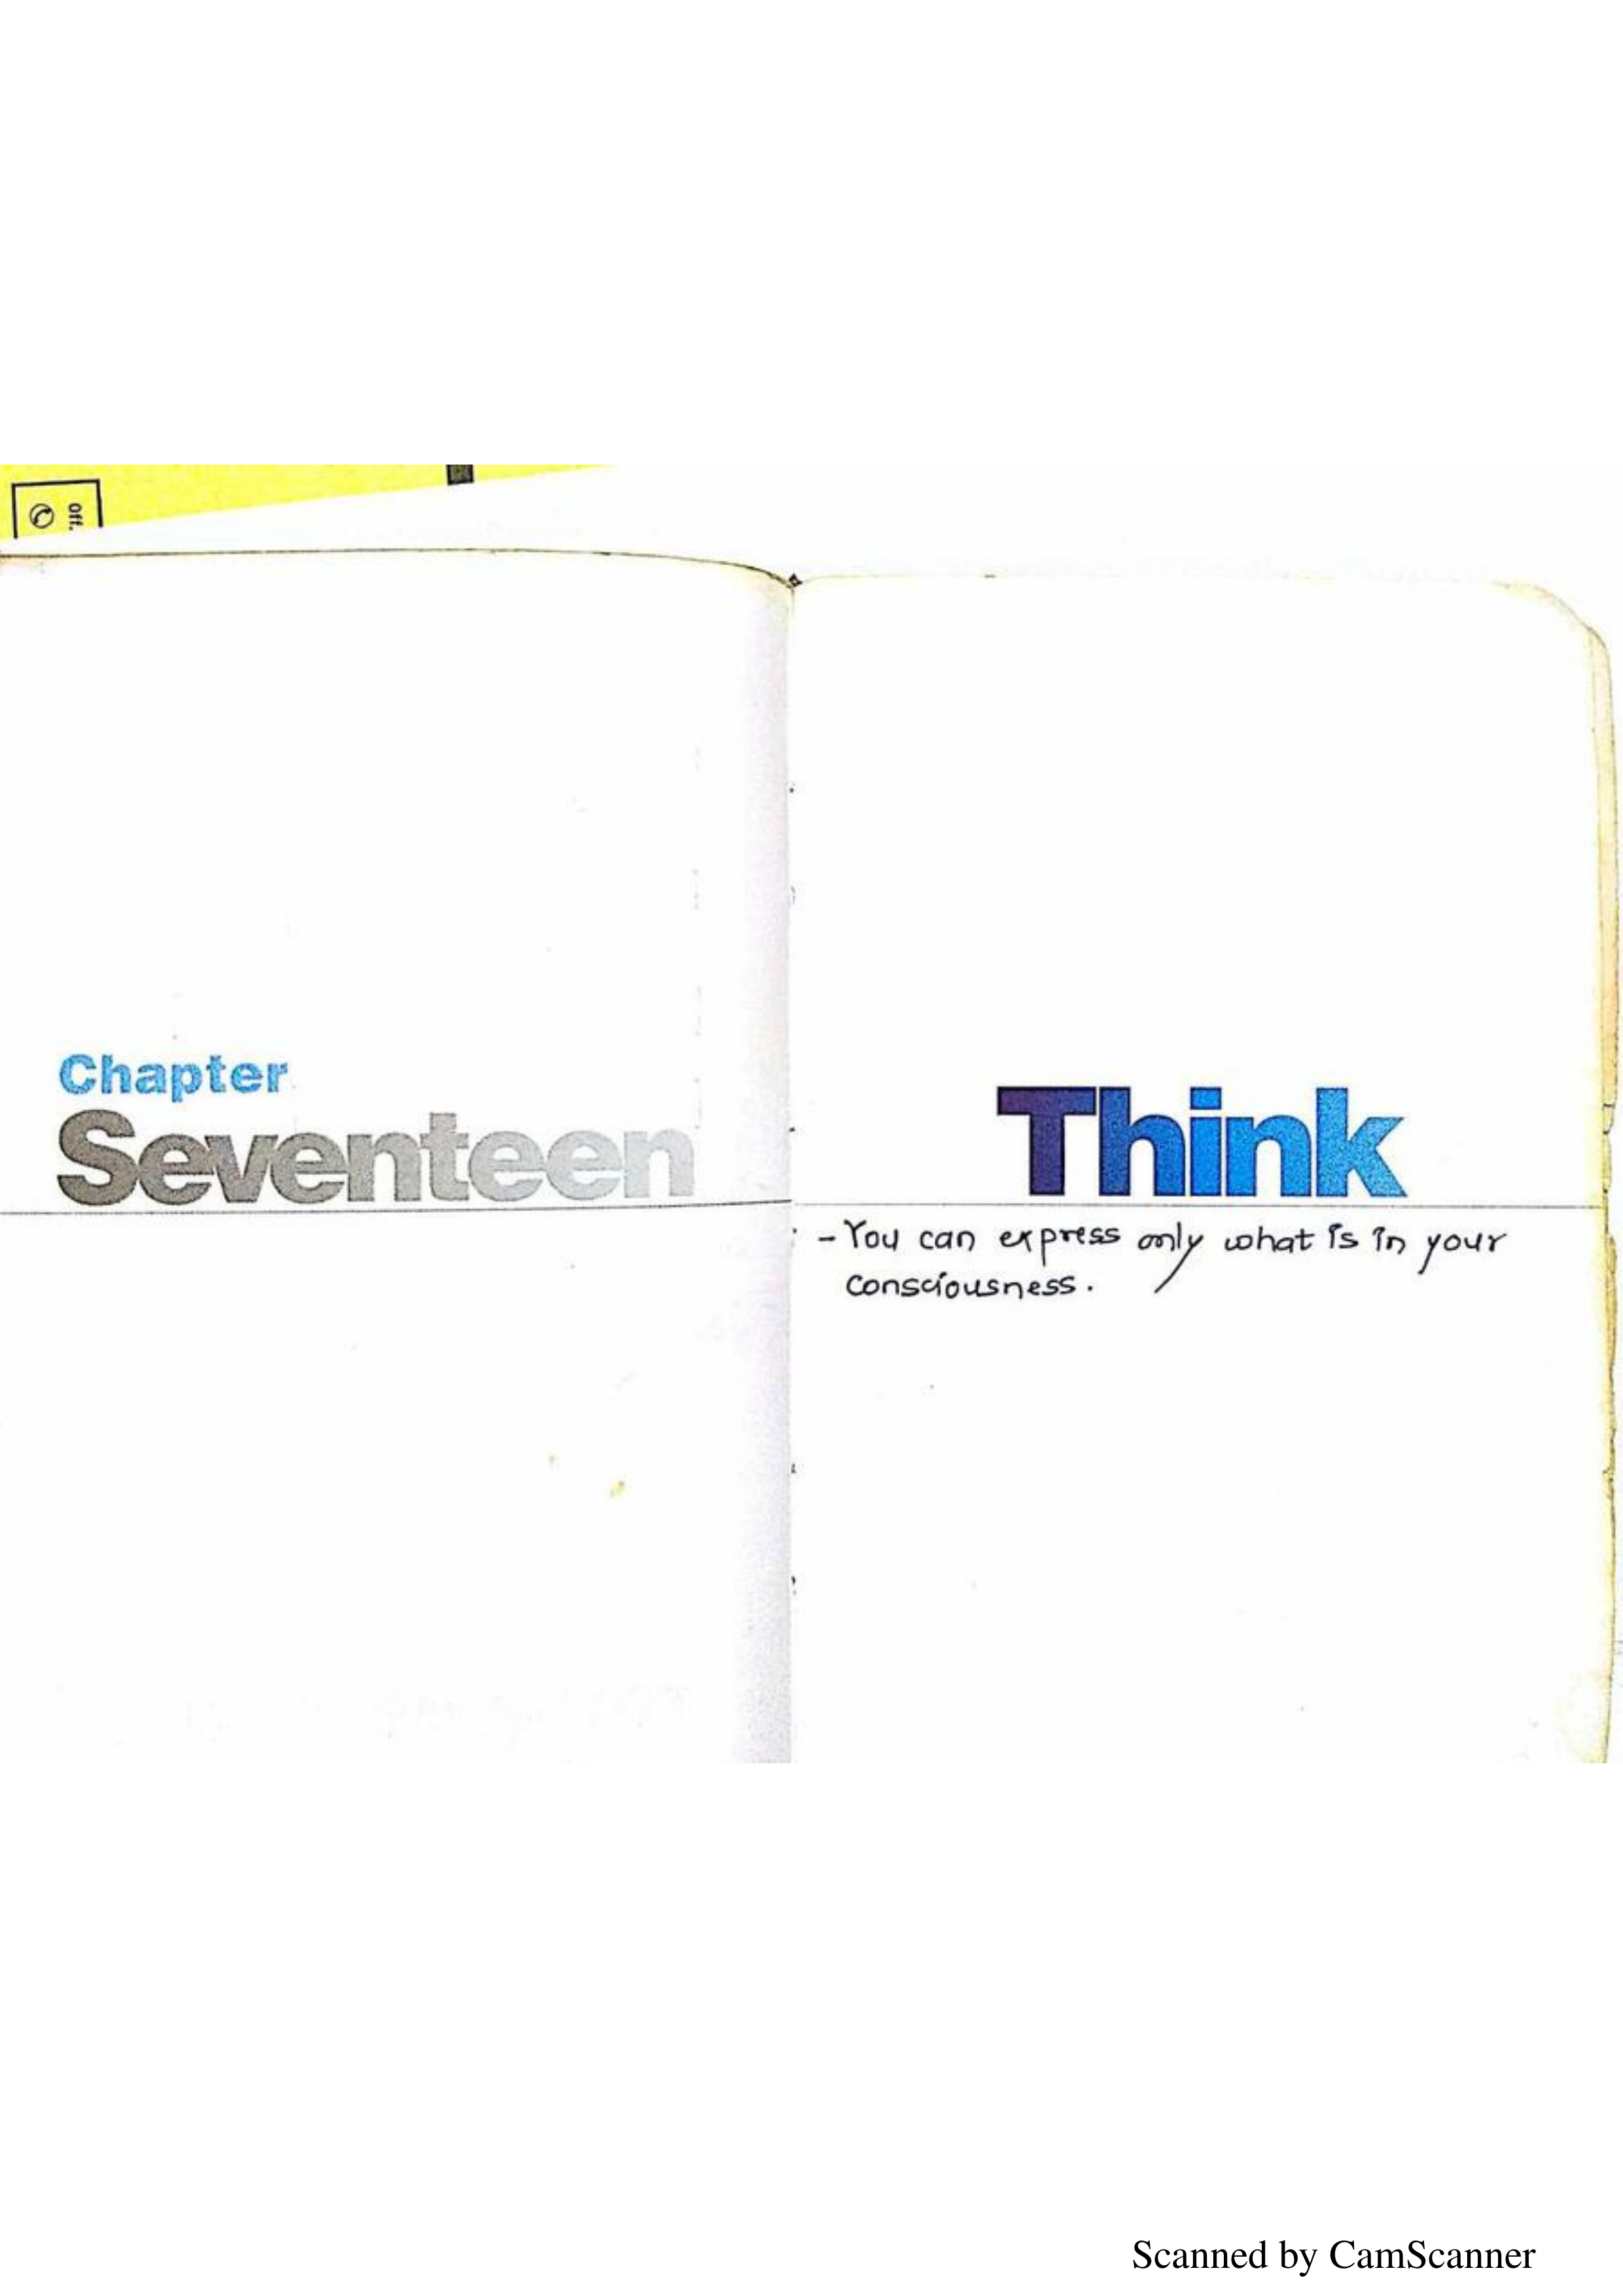 Off.
Chapter
Seventeen
Think
- You can express only what is in your
consciousness.
Scanned by CamScanner